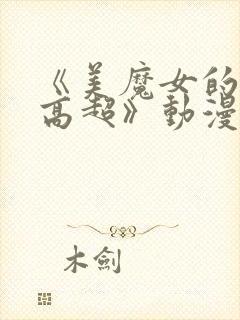 《美魔女的
高超》動漫
木劍